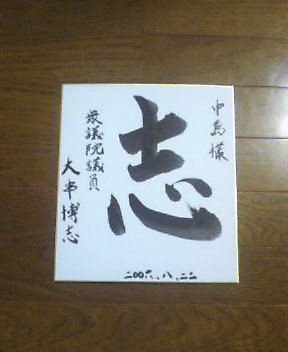 中島様
志
衆議院議員
大串博志
二〇〇六、八、二二